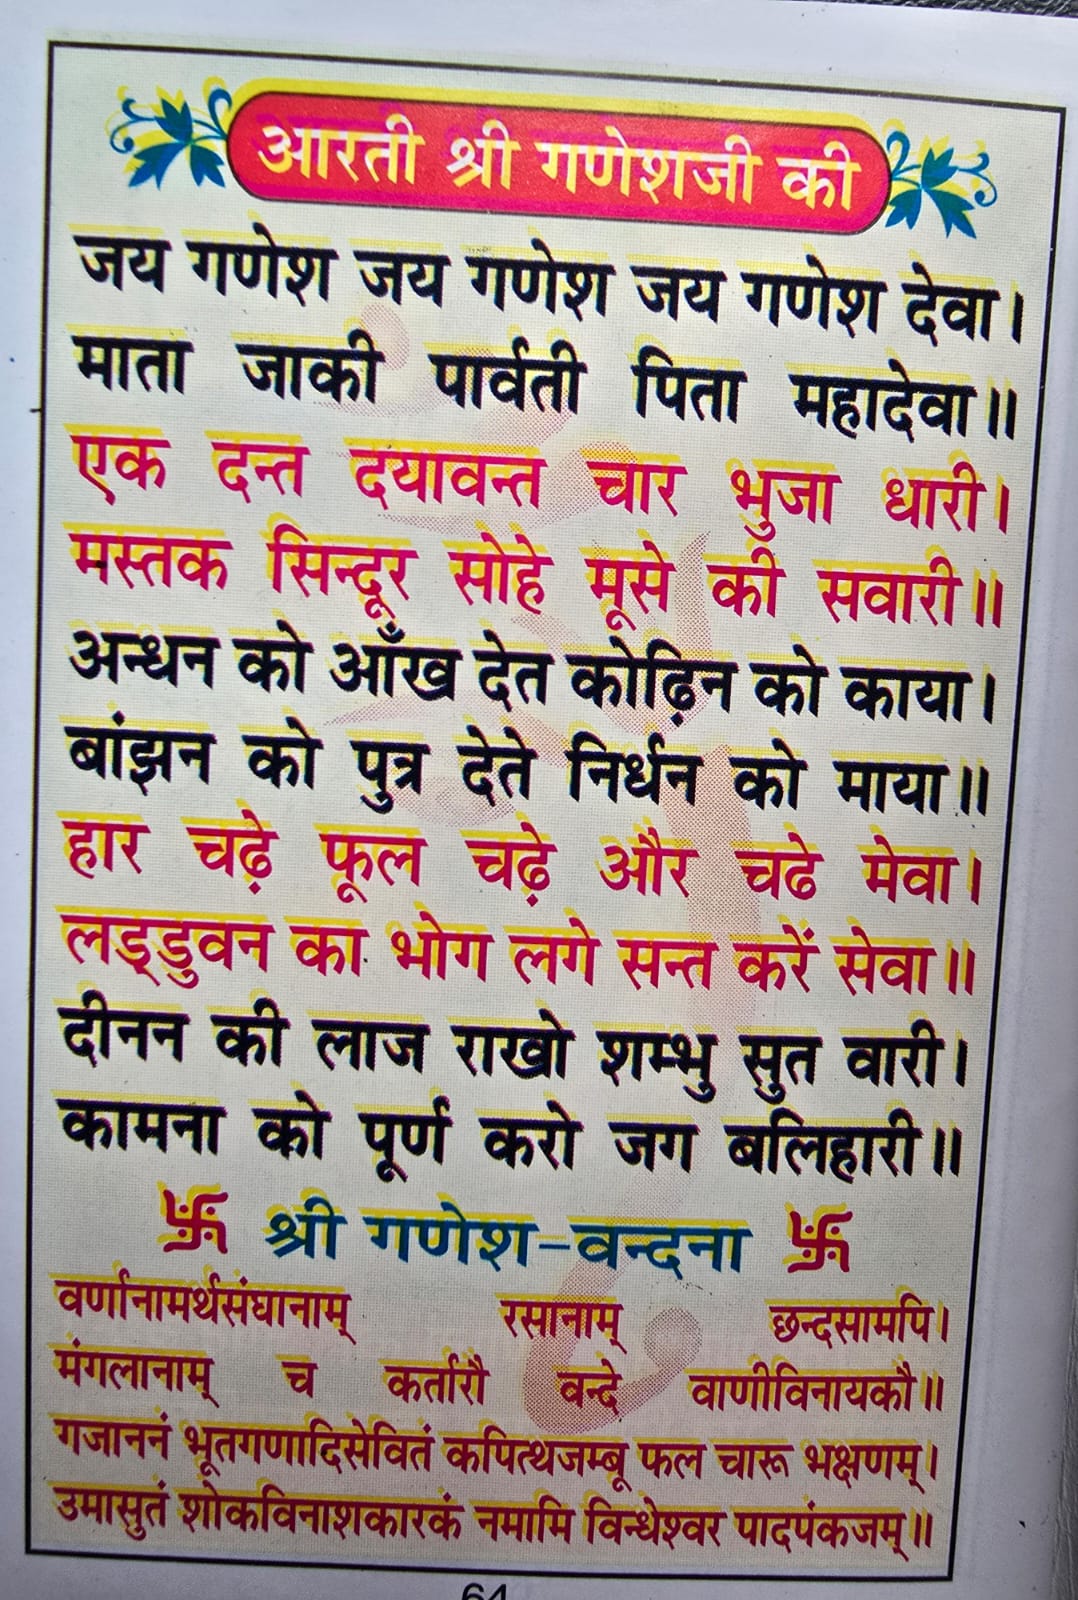 आरती श्री गणेशजी की
जय गणेश जय गणेश जय गणेश देवा।
माता जाकी पार्वती पिता महादेवा॥
एक दन्त दयावन्त चार भुजा धारी।
मस्तक सिन्दूर सोहे मूसे की सवारी॥
अन्धन को आँख देत कोढ़िन को काया।
बांझन को पुत्र देते निर्धन को माया॥
हार चढ़े फूल चढ़े और चढे मेवा।
लड्डुवन का भोग लगे सन्त करें सेवा॥
दीनन की लाज राखो शम्भु सुत वारी।
कामना को पूर्ण करो जग बलिहारी॥
卐 श्री गणेश-वन्दना 卐
वर्णानामर्थसंघानाम् रसानाम् छन्दसामपि।
मंगलानाम् च कर्तारौ वन्दे वाणीविनायकौ॥
गजाननं भूतगणादिसेवितं कपित्थजम्बू फल चारू भक्षणम्।
उमासुतं शोकविनाशकारकं नमामि विन्धेश्वर पादपंकजम्॥
64